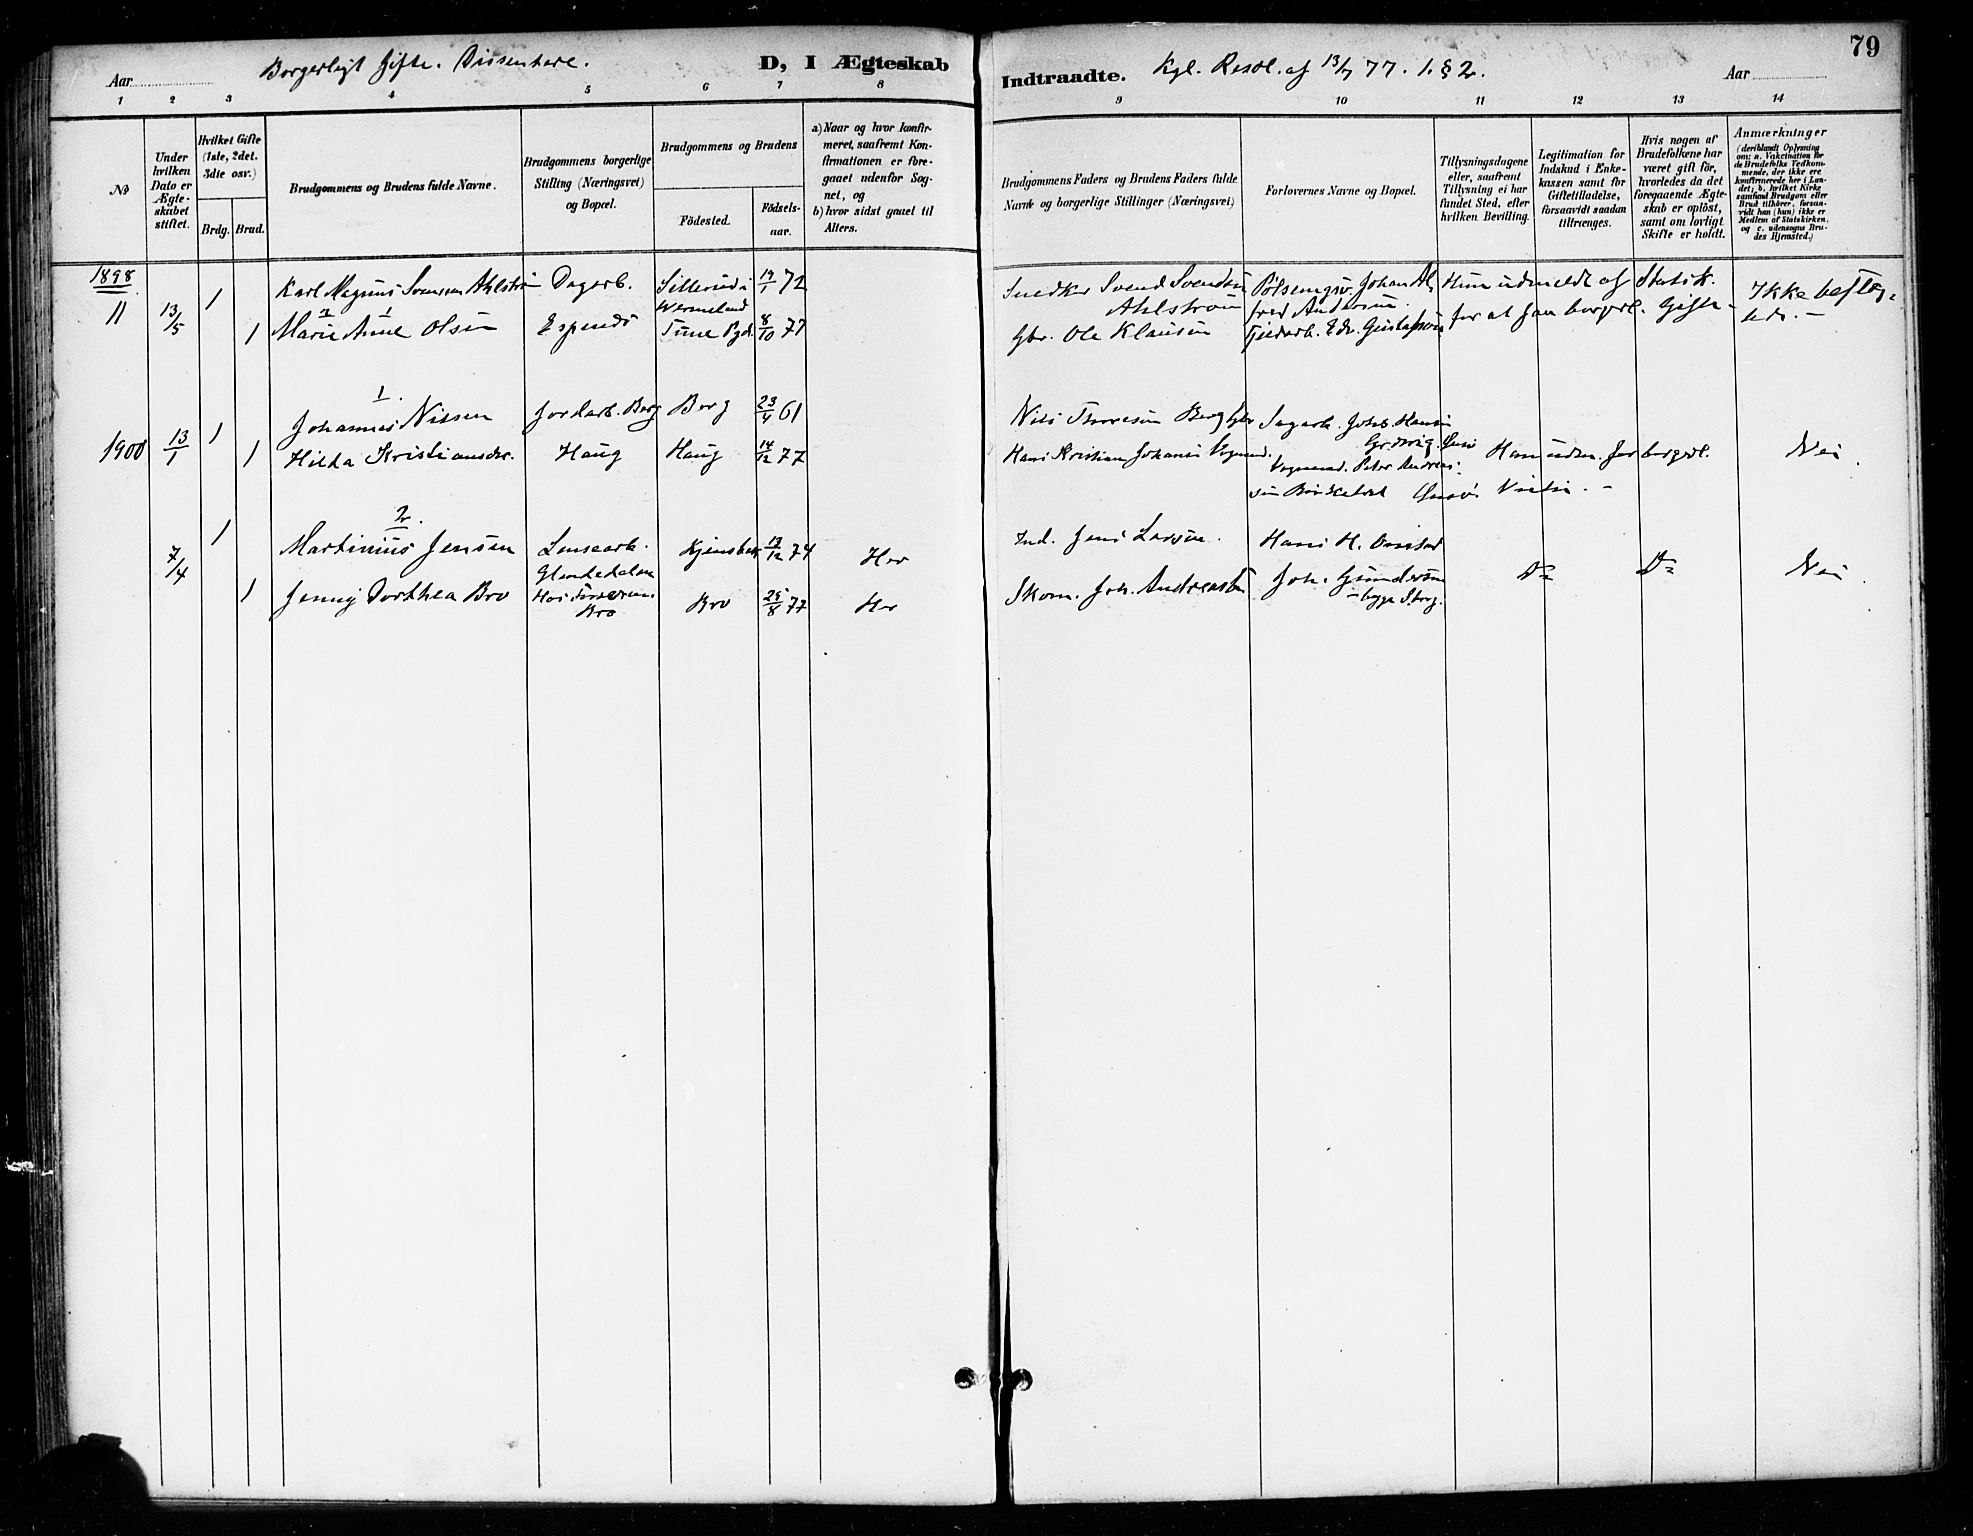 79
Aar
Borgerligt Gifte. Dissentere.
D, I Ægteskab
Indtraadte.
Kgl. Resol. af 13/7 77. 1. § 2.
Aar
1 2 3 4 5 6 7 8 9 10 11 12 13 14
No
Under
hvilken
Dato er
Ægte-
skabet
stiftet.
Hvilket Gifte
(1ste, 2det.
3die osv.)
Brdg. Brud.
Brudgommens og Brudens fulde Navne.
Brudgommens borgerlige
Stilling (Næringsvei)
og Bopæl.
Brudgommens og Brudens
Födested.
Födsels-
aar.
a) Naar og hvor konfir-
meret, saafremt Kon-
firmationen er fore-
gaaet udenfor Sog-
net, og
b) hvor sidst gaaet til
Alters.
Brudgommens Faders og Brudens Faders fulde
Navne og borgerlige Stillinger (Næringsvei)
Forlovernes Navne og Bopæl.
Tillysningsdagene
eller, saafremt
Tillysning ei har
fundet Sted, efter
hvilken Bevilling.
Legitimation for
Indskud i Enke-
kassen samt for
Giftetilladelse,
forsaavidt saadan
tiltrænges.
Hvis nogen af
Brudefolkene har
været gift för,
hvorledes da det
foregaaende Ægte-
skab er oplöst,
samt om lovligt
Skifte er holdt.
Anmærkninger
(deriblandt Oplysning
om: a. Vakcination for
de Brudefolks Vedkom-
mende, der ikke ere
konfirmerede her i Lan-
det; b. hvilket Kirke
samfund Brudgom eller
Brud tilhörer, forsaa-
vidt han (hun) ikke er
Medlem af Statskirken,
og c. udensogns Bru-
des Hjemsted.)
1898
11 13/5 1 Karl Magnus Svensson Ahlström Dagarb. Sillerud i 19/1 72
Wermeland
1 Marie Anne Olsen Tune Pgd. 8/10 77
Snedker Svend Svendsen
Ahlstrom
Gbr. Ole Klausen
Johan Al-
fred Andersen
Edv. Gustafson
Hun udmeldt af Statsk.
for at faa borgerl. Gifte
Ikke
1.
1 Johannes Nilsen Jordarb. Berg Berg 23/4 61
1900 13/1 1 Hilda Kristiansdr. Haug Haug 14/12 77
Nils Thoresen Berg
Hans Kristian Johansen
Sagarb. Johs. Hansen
Peter Andrea-
sen
Han udm. for borgerl. Nei
2.
7/4 1 Martinius Jensen Lensearb. 13/12 74 Her
1 Jenny Dorthea Bro Bro 25/8 77 Her
Bro
Ind. Jens Larsen. Hans H.
Skom. Joh. Andreasen Joh. Gundersen
Do Do Nei